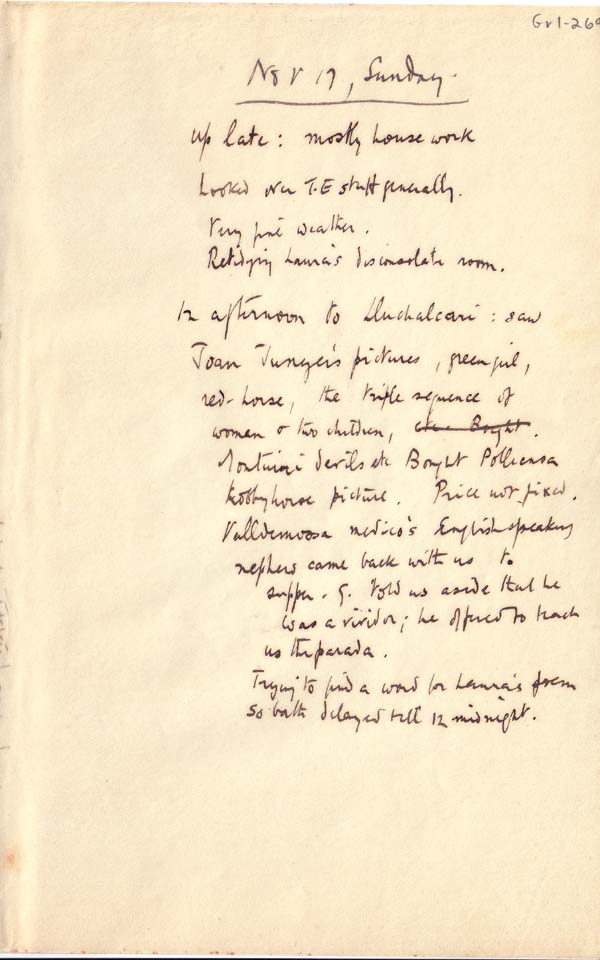 Gr1-269
Nov 17, Sunday.
Up late: mostly house work
Looked over T.E stuff generally.
Very fine weather.
Retidying Laura's disconsolate room.
In afternoon to Lluchalcari: saw
Joan Junyer's pictures, green girl,
red-horse, the triple sequence of
woman & two children, etc. Bought.
Montuiri devils etc Bought Pollensa
hobbyhorse picture. Price not fixed.
Valldemossa medico's English speaking
nephew came back with us to
supper. G. told us aside that he
was a vividor; he offered to teach
us the parada.
Trying to find a word for Laura's poem
so bath delayed till 12 midnight.